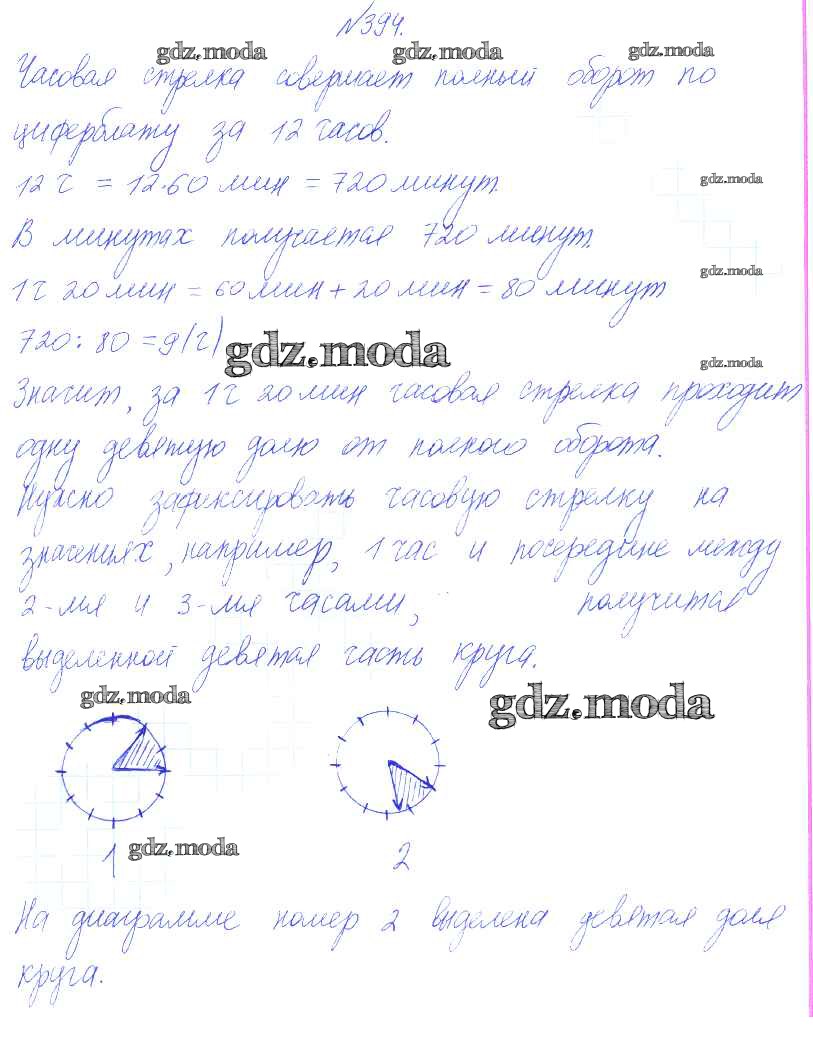 №394.
gdz.moda gdz.moda gdz.moda
Часовая стрелка совершает полный оборот по
циферблату за 12 часов.
12 ч = 12·60 мин = 720 минут.
gdz.moda
В минутах получается 720 минут.
gdz.moda
1 ч 20 мин = 60 мин + 20 мин = 80 минут
720 : 80 = 9 (ч)
gdz.moda
gdz.moda
Значит, за 1 ч 20 мин часовая стрелка проходит
одну девятую долю от полного оборота.
Нужно зафиксировать часовую стрелку на
значениях, например, 1 час и посередине между
2-мя и 3-мя часами, получится
выделенной девятая часть круга.
gdz.moda
gdz.moda
1 gdz.moda 2
На диаграмме номер 2 выделена девятая доля
круга.